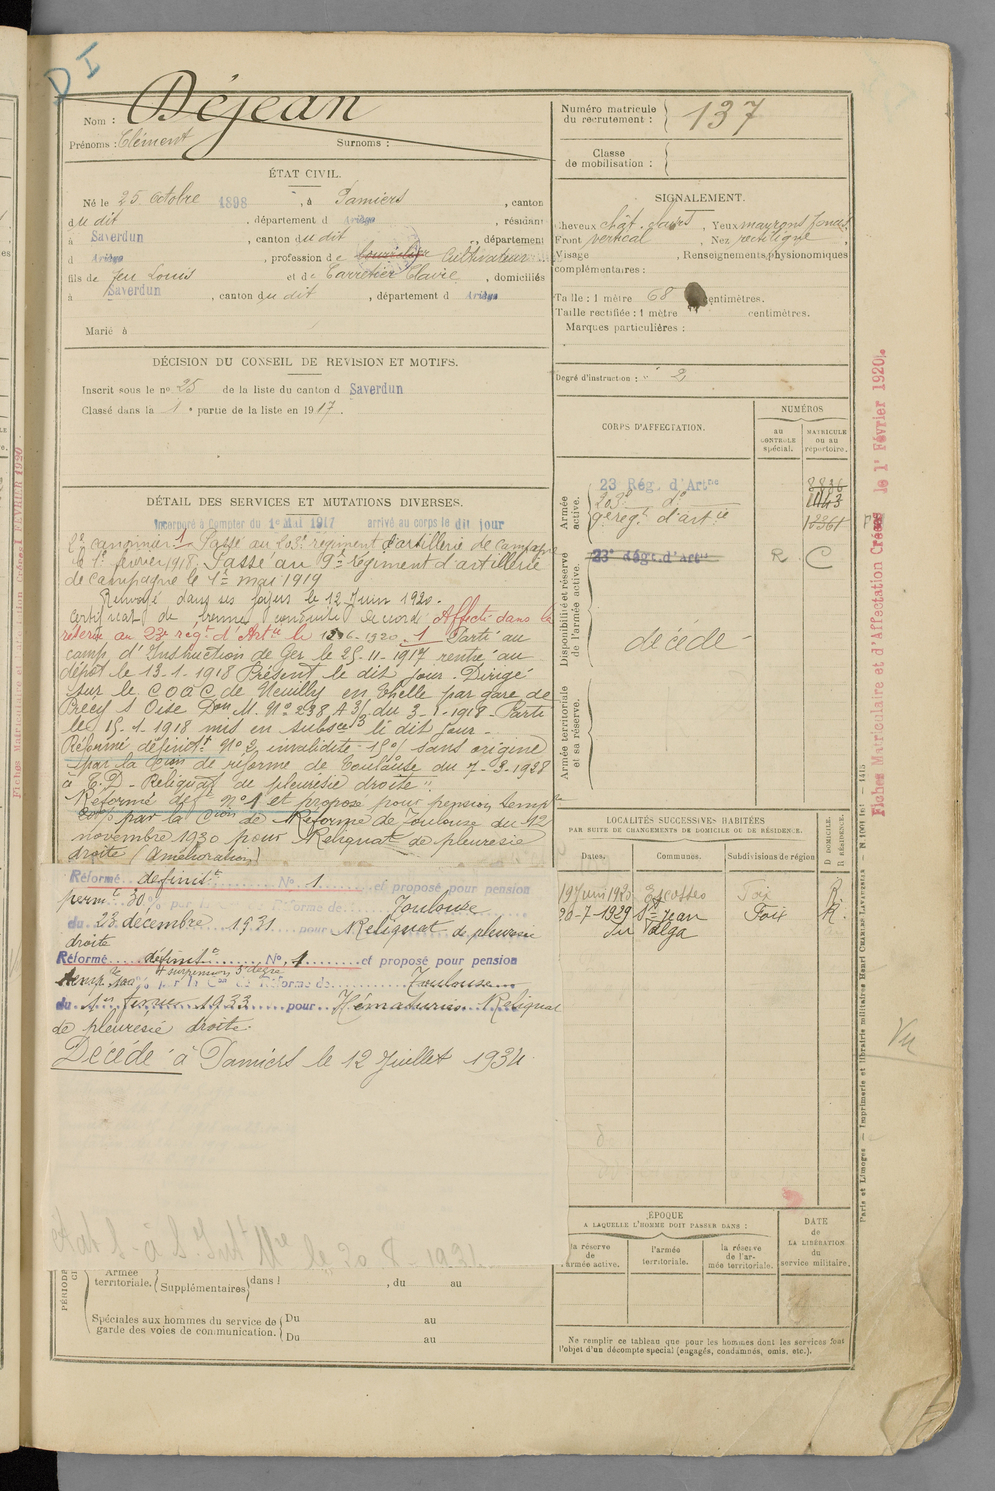 DI
Nom : Déjean
Prénoms : Clément Surnoms :
ÉTAT CIVIL.
Né le 25 Octobre 1898, à Pamiers, canton
du dit, département d Ariège, résidant
à Saverdun, canton du dit, département
d Ariège, profession de Cultivateur
fils de feu Louis et de Carretier Claire, domiciliés
à Saverdun, canton du dit, département d Ariège
Marié à
DÉCISION DU CONSEIL DE REVISION ET MOTIFS.
Inscrit sous le no 25 de la liste du canton d Saverdun
Classé dans la 1e partie de la liste en 1917.
DÉTAIL DES SERVICES ET MUTATIONS DIVERSES.
Incorporé à Compter du 1er Mai 1917 arrivé au corps le dit jour
2e canonnier 1 Passé au 203e regiment d'artillerie de campagne
le 1er février 1918. Passé au 9e régiment d'artillerie
de campagne le 1er mai 1919
Renvoyé dans ses foyers le 12 Juin 1920.
Certificat de bonne conduite accordé Affecté dans la
réserve au 23e régt d'Artie le 1 Parti au
camp d'Instruction de Ger le 25-11-1917 rentré au
dépôt le 13-1-1918 Présent le dit jour. Dirigé
sur le C O A C de Neuilly en Thelle par gare de
Précy s Oise Don M. No 238 A 3/3 du 3-1-1918 - Parti
le 15-1-1918 mis en subsce le dit jour -
Réformé définitt No 2, invalidité - 15% sans origine
par la Con de réforme de Toulouse du 7-3-1928
à T.D - Reliquat de pleurésie droite".
Réformé déft No 1 et proposé pour pension tempre
par la Cion de Réforme de Toulouse du 12
novembre 1930 pour Reliquat de pleurésie
droite (Amélioration)
Réformé définitt No 1 et proposé pour pension
permte 30% par la Réforme de Toulouse
du 23 décembre 1931 pour Reliquat de pleurésie
droite
Réformé définitt No 1 et proposé pour pension
temp 100% + surpension 5e degré par la Con de Réforme de Toulouse
du 1933 pour Hématuries. Reliquat
de pleurésie droite.
Décédé à Pamiers le 12 Juillet 1934
PÉRIODE
Armée territoriale. Supplémentaires dans l , du au
Spéciales aux hommes du service de garde des voies de communication. Du au
Du au
Numéro matricule du recrutement : 137
Classe de mobilisation :
SIGNALEMENT.
Cheveux chât. clairs, Yeux marrons foncés
Front vertical, Nez rectiligne,
Visage , Renseignements physionomiques
complémentaires :
Taille : 1 mètre 68 centimètres.
Taille rectifiée : 1 mètre centimètres.
Marques particulières :
Degré d'instruction : 2
CORPS D'AFFECTATION.
NUMÉROS
au CONTROLE spécial.
MATRICULE ou au répertoire.
Armée active.
23 Rég. d'Artie
203e do
9e regt d'artie
Disponibilité et réserve de l'armée active.
23e Régt. d'Artie R C
décédé
Armée territoriale et sa réserve.
LOCALITÉS SUCCESSIVES HABITÉES
PAR SUITE DE CHANGEMENTS DE DOMICILE OU DE RÉSIDENCE.
Dates. Communes. Subdivisions de région D DOMICILE. R RÉSIDENCE.
19 Juin 1925 Escosse Foix R
20-7-1929 St Jean Foix R.
du Falga
ÉPOQUE
A LAQUELLE L'HOMME DOIT PASSER DANS :
la réserve de l'armée active.
l'armée territoriale.
la réserve de l'armée territoriale.
DATE de LA LIBÉRATION du service militaire.
Ne remplir ce tableau que pour les hommes dont les services font
l'objet d'un décompte spécial (engagés, condamnés, omis, etc.).
Fiches Matriculaire et d'Affectation Créées le 1er Février 1920.
Paris et Limoges — Imprimerie et librairie militaires Henri CHARLES-LAVAUZELLE
Vu